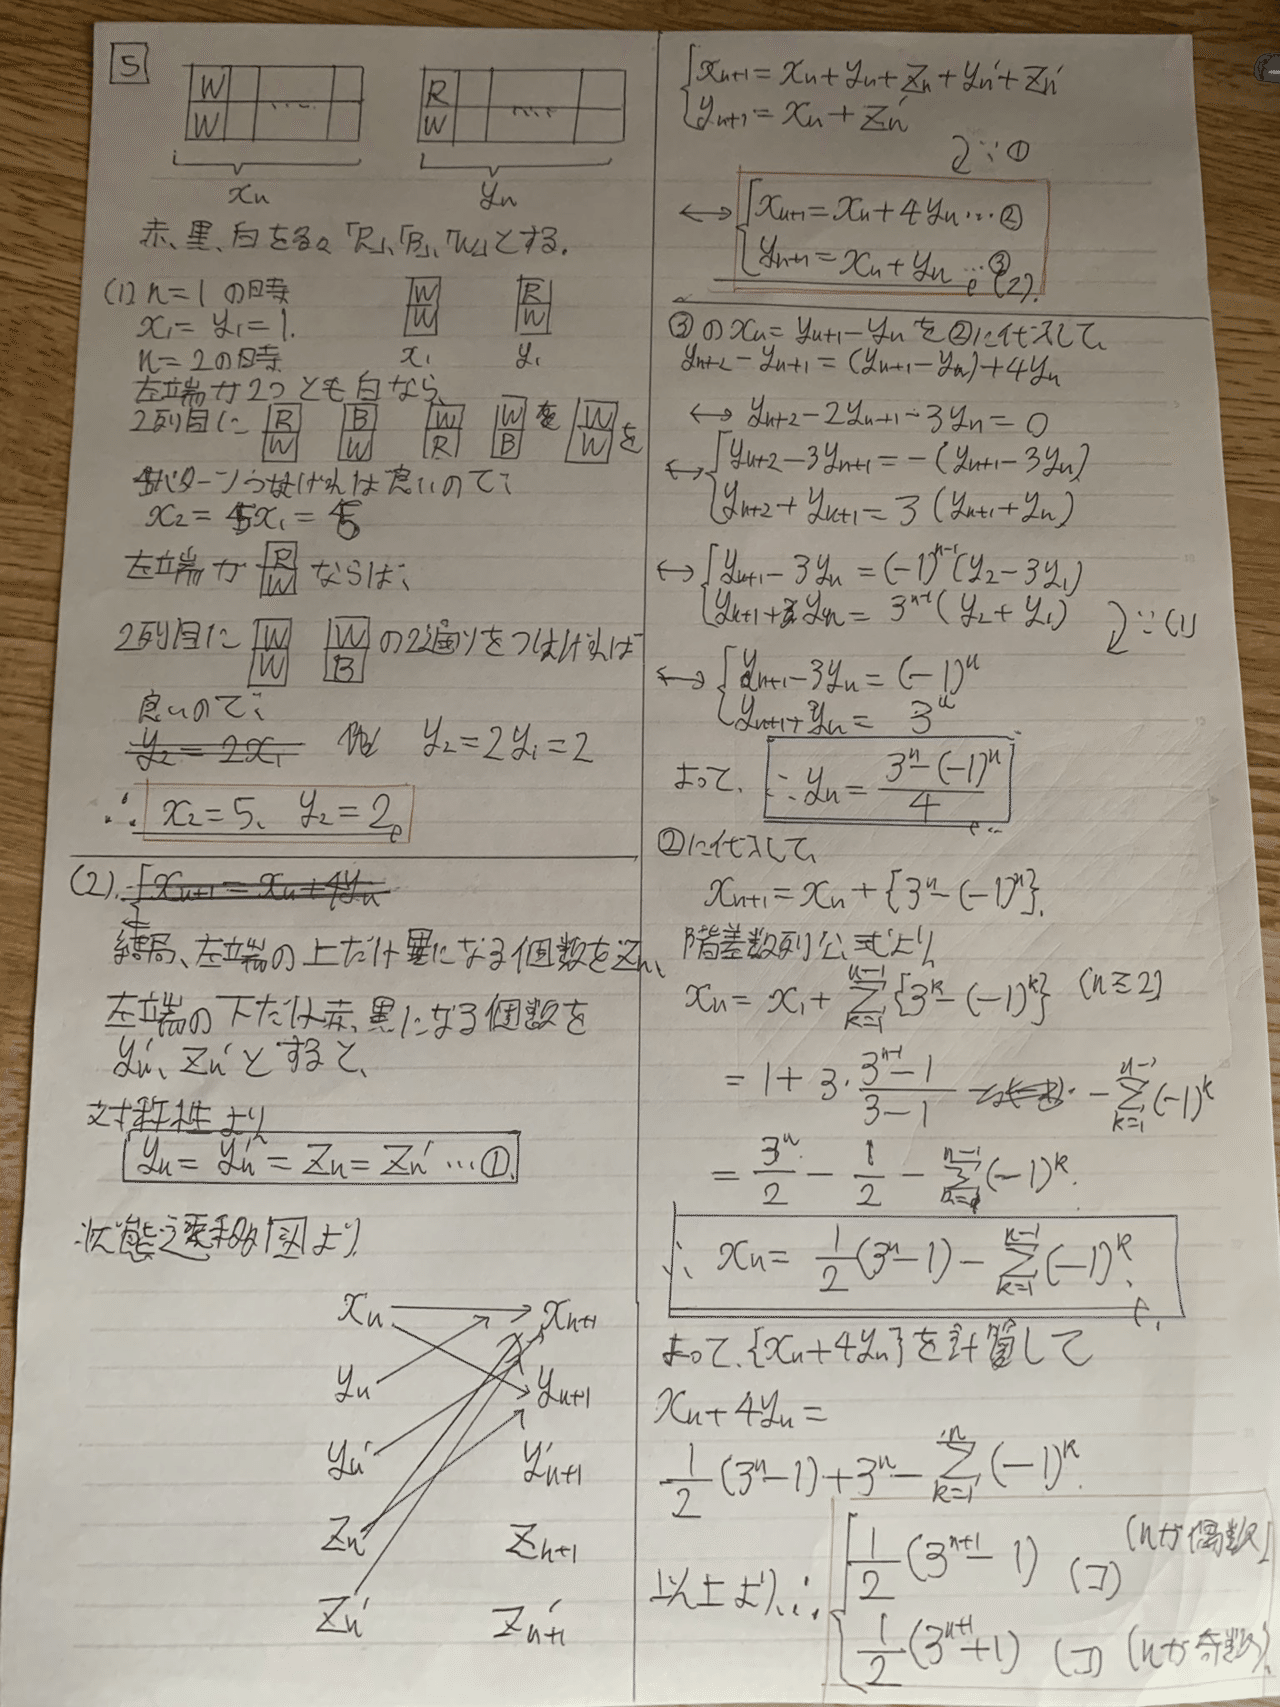 5
W W ...
R W ...
xn yn
赤、黒、白を各々「R」、「B」、「W」とする.
(1) n=1の時
x1=y1=1.
W W R W
x1 y1
n=2の時
左端が2つとも白なら、
2列目に R W B W W R W B を W W を
5パターンつなげれば良いので、
x2=5x1=5
左端が R W ならば、
2列目に W W W B の2通りをつなげれば
良いので、
y2=2x1 y2=2y1=2
∴ x2=5、y2=2
(2). {xn+1=xn+4yn
結局、左端の上だけ黒になる個数をzn、
左端の下だけ赤、黒になる個数を
yn'、zn'とすると、
対称性より
yn=yn'=zn=zn' …①
状態遷移図より
xn xn+1
yn yn+1
yn' y'n+1
zn zn+1
zn' z'n+1
{xn+1=xn+yn+zn+yn'+zn'
yn+1=xn+zn'
∵①
↔ {xn+1=xn+4yn…②
yn+1=xn+yn…③
(2).
③のxn=yn+1-ynを②に代入して、
yn+2-yn+1=(yn+1-yn)+4yn
↔ yn+2-2yn+1-3yn=0
↔ {yn+2-3yn+1=-(yn+1-3yn)
yn+2+yn+1=3(yn+1+yn)
↔ {yn+1-3yn=(-1)^n-1(y2-3y1)
yn+1+yn=3^n-1(y2+y1)
∵(1)
↔ {yn+1-3yn=(-1)^n
yn+1+yn=3^n
よって、∴yn=(3^n-(-1)^n)/4
②に代入して、
xn+1=xn+{3^n-(-1)^n}.
階差数列公式より、
xn=x1+Σ_{k=1}^{n-1}{3^k-(-1)^k} (n≧2)
=1+3・(3^n-1-1)/(3-1) -Σ_{k=1}^{n-1}(-1)^k
=3^n/2-1/2-Σ_{k=1}^{n-1}(-1)^k.
∴ xn=1/2(3^n-1)-Σ_{k=1}^{n-1}(-1)^k.
よって、{xn+4yn}を計算して
xn+4yn=
1/2(3^n-1)+3^n-Σ_{k=1}^{n}(-1)^k.
以上より、∴ {1/2(3^n+1-1) (コ) (nが偶数)
1/2(3^n+1+1) (コ) (nが奇数).